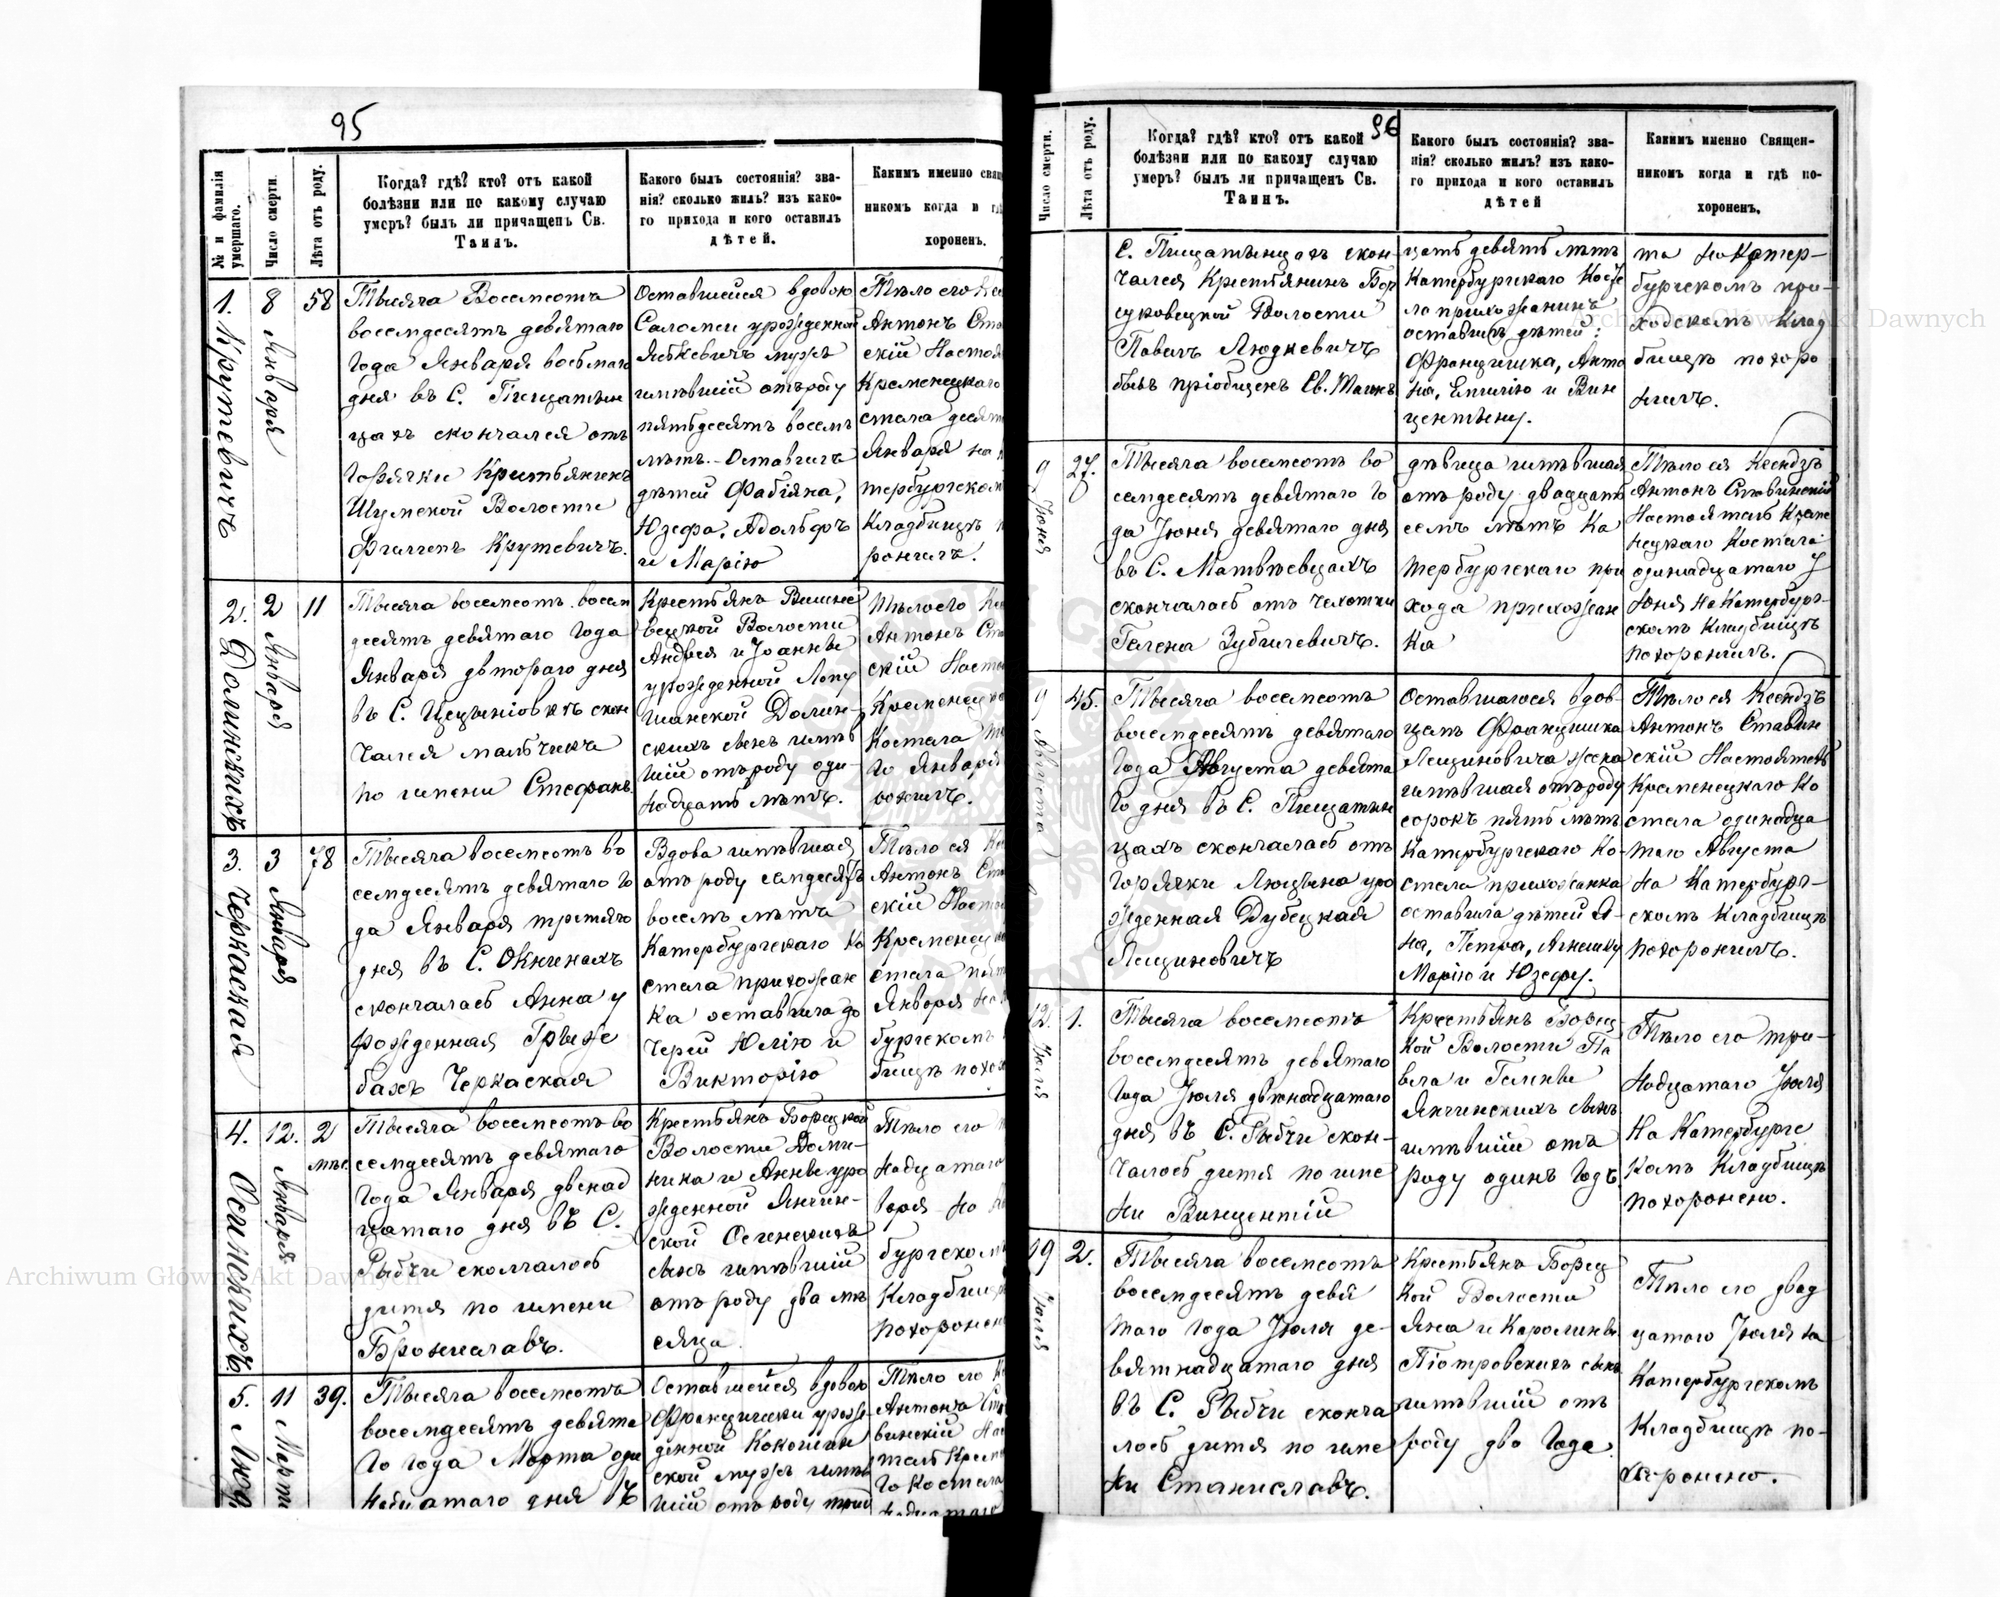 95
№ и фамилія умершаго.
Число смерти.
Лѣта отъ роду.
Когда? гдѣ? кто? отъ какой
болѣзни или по какому случаю
умеръ? былъ ли причащенъ Св.
Таинъ.
Какого былъ состоянія? зва-
нія? сколько жилъ? изъ како-
го прихода и кого оставилъ
дѣтей.
Каким именно свящ
никомъ когда и гдѣ
хоронен.
1. Крутевичъ
8 Января
58
Тысяча Восемсотъ
восемдесятъ девятаго
Года Января восьмаго
дня въ С. Пищатын
цахъ скончался отъ
Горячки Крестьянинъ
Шумской Волости
Филиппъ Крутевичъ.
Оставшейся вдовою
Саломеи урожденной
Яцкевичъ мужъ
имѣвшій отъ роду
пятьдесятъ восемь
лѣтъ. Оставилъ
дѣтей Фабіяна,
Юзефа, Адольфъ
и Марію
Тѣло его Ксе
Антонъ Ста
скій Настоя
Кременецкаго
стела деся
Января на
тербургском
Кладбищѣ п
ронилъ.
2. Долинскихъ
2 Января
11
Тысяча восемсотъ восем
десятъ девятаго Года
Января втораго дня
въ С. Цеценіовкѣ скон
чался мальчикъ
по имени Стефанъ.
Крестьянъ Вишне
вецкой Волости
Андрея и Іоанны
урожденной Лопу
шанской Долин-
скихъ сынъ имѣв
шій отъ роду оди-
надцать лѣтъ.
Тѣло его Ксе
Антонъ Ста
скій Насто
Кременецка
Костела
го Января
ронилъ.
3. Черкаская
3 Января
78
Тысяча восемсотъ во
семдесятъ девятаго го
да Января третяго
дня въ С. Окнинахъ
скончалась Анна у
рожденная Грыже
бахъ Черкаская
Вдова имѣвшая
отъ роду семдесятъ
восемь лѣтъ
Катербургскаго Ко
стела прихожан
ка оставила до
черей Юлію и
Викторію
Тѣло ея Ксе
Антонъ Ста
скій Насто
Кременец
стела пят
Января на
бургскомъ
бищѣ похо
4. Осинскихъ
12. Января
2 мѣс
Тысяча восемсотъ во
семдесятъ девятаго
Года Января двенад
цатаго дня въ С.
Рыбчи скончалось
дитя по имени
Брониславъ.
Крестьянъ Борецкой
Волости Доми-
ника и Анны уро
жденной Янчин-
ской Осинскихъ
сынъ имѣвшій
отъ роду два мѣ
сяца.
Тѣло его
надцатаго
варя на
бургском
Кладбищѣ
похоронен
5. Люд
11 Марта
39.
Тысяча восемсотъ
восемдесятъ девята
го года Марта оди
надцатаго дня въ
Оставшейся вдовою
Францишки урож
денной Кокошин
ской мужъ имѣв
шій отъ роду трид
Тѣло его К
Антонъ Ст
винскій На
тель Креме
го Костела
надцатаго
96
Число смерти.
Лѣта отъ роду.
Когда? гдѣ? кто? отъ какой
болѣзни или по какому случаю
умеръ? былъ ли причащенъ Св.
Таинъ.
Какого былъ состоянія? зва-
нія? сколько жилъ? изъ како-
го прихода и кого оставилъ
дѣтей
Какимъ именно Священ-
никомъ когда и гдѣ по-
хороненъ.
С. Пищатынцахъ скон
чался Крестьянинъ Бор
суковецкой Волости
Павелъ Людкевичъ
бывъ пріобщенъ Св. Таинъ
цать девять лѣтъ
Катербургскаго Косте
ла прихожанинъ
оставилъ дѣтей:
Францишка, Анто
на, Емилію и Вин
центыну.
та на Катер-
бургскомъ при-
ходскомъ Клад
бищѣ похоро
нилъ.
9 Іюня
27.
Тысяча восемсотъ во
семдесятъ девятаго Го
да Іюня девятаго дня
въ С. Матвѣевцахъ
скончалась отъ чахотки
Гелена Зубилевичъ.
дѣвица имѣвшая
отъ роду двадцать
семь лѣтъ Ка
тербургскаго при
хода прихожан
ка
Тѣло ея Ксендзъ
Антонъ Ставинскій
Настоятель Креме
нецкаго Костела
одинадцатаго І
юня на Катербург-
скомъ Кладбищѣ
похоронилъ.
9 Августа
45.
Тысяча восемсотъ
восемдесятъ девятаго
Года Августа девята
го дня въ С. Пищатын
цахъ скончалась отъ
Горячки Люцына уро
жденная Дубецкая
Лещиновичъ
Оставшагося вдов-
цемъ Францишка
Лещиновича жена
имѣвшая отъ роду
сорокъ пять лѣтъ
Катербургскаго Ко-
стела прихожанка
оставила дѣтей Я-
на, Петра, Агнешку
Марію и Юзефу.
Тѣло ея Ксендзъ
Антонъ Ставин
скій Настоятель
Кременецкаго Ко
стела одинадца
таго Августа
на Катербург-
скомъ Кладбищѣ
похоронилъ.
12. Іюля
1.
Тысяча восемсотъ
восемдесятъ девятаго
Года Іюля двѣнадцатаго
дня въ С. Рыбчи скон-
чалось дитя по име
ни Винцентій
Крестьянъ Борец
кой Волости Па
вла и Галины
Янчинскихъ сынъ
имѣвшій отъ
роду одинъ Годъ
Тѣло его три-
надцатаго Іюля
на Катербургс
комъ Кладбищѣ
похоронено.
19 Іюля
2.
Тысяча восемсотъ
восемдесятъ девя
таго Года Іюля де-
вятнадцатаго дня
въ С. Рыбчи сконча
лось дитя по име
ни Станиславъ.
Крестьянъ Борец
кой Волости
Яна и Каролины
Піотровскихъ сынъ
имѣвшій отъ
роду два Года.
Тѣло его двад
цатаго Іюля на
Катербургскомъ
Кладбищѣ по-
хоронено.
Archiwum Główne Akt Dawnych
Archiwum Główne Akt Dawnych